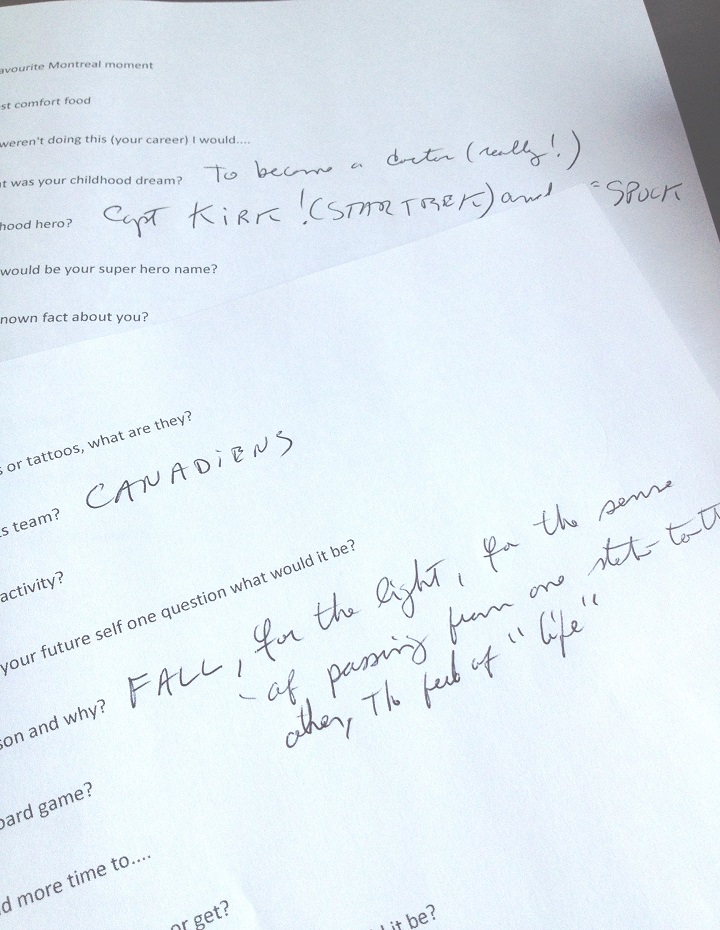 avourite Montreal moment
st comfort food
weren't doing this (your career) I would....
t was your childhood dream? To become a doctor (really!)
hood hero? Capt KIRK! (STAR TREK) and SPOCK
would be your super hero name?
nown fact about you?
s or tattoos, what are they?
s team? CANADIENS
activity?
your future self one question what would it be?
son and why? FALL, for the light, for the sense
- of passing from one state to th
other, The feel of "life"
oard game?
d more time to....
or get?
it be?